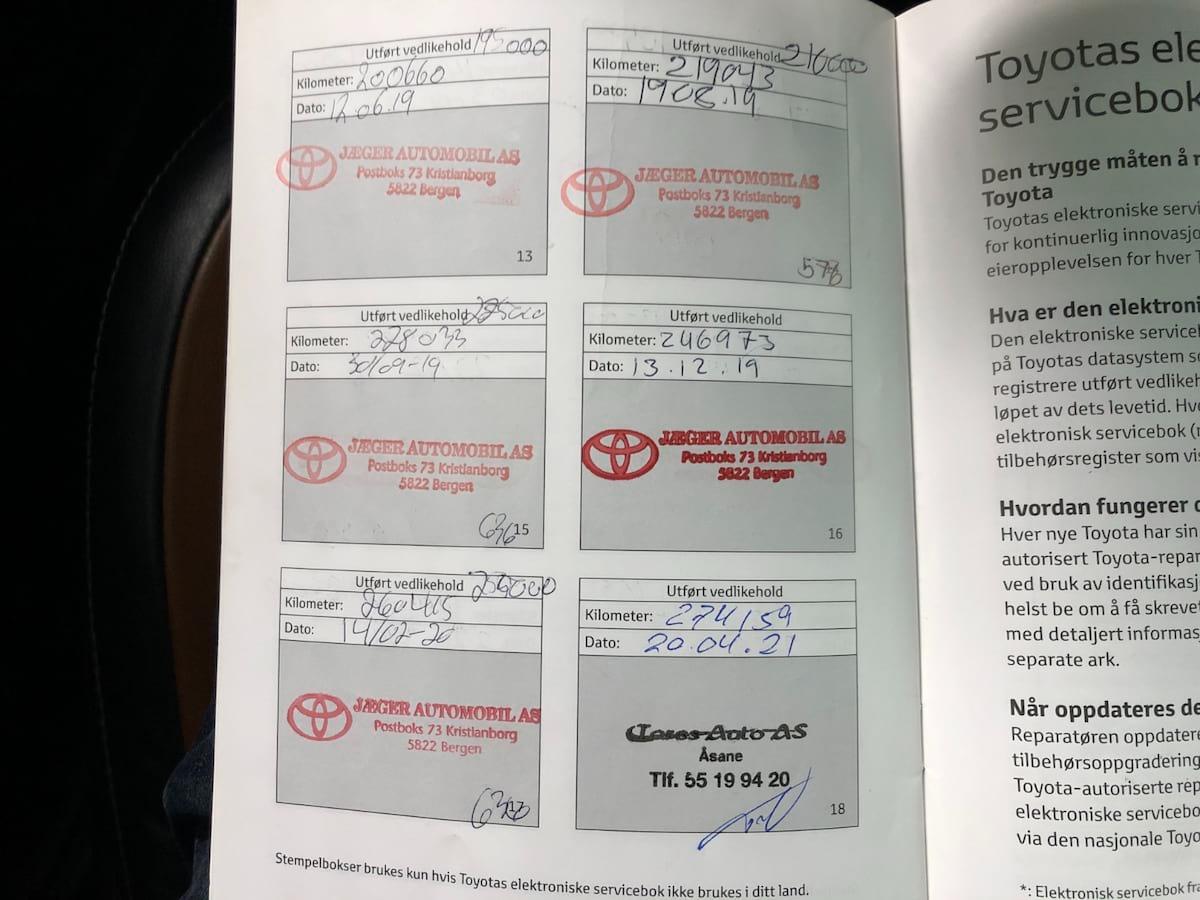 Utført vedlikehold 195000
Kilometer: 200660
Dato: 12.06.19
JÆGER AUTOMOBIL AS
Postboks 73 Kristianborg
5822 Bergen
13
Utført vedlikehold 210000
Kilometer: 219043
Dato: 1908.19
JÆGER AUTOMOBIL AS
Postboks 73 Kristianborg
5822 Bergen
Utført vedlikehold 225000
Kilometer: 228033
Dato: 30/09-19
JÆGER AUTOMOBIL AS
Postboks 73 Kristianborg
5822 Bergen
15
Utført vedlikehold
Kilometer: 246973
Dato: 13.12.19
JÆGER AUTOMOBIL AS
Postboks 73 Kristianborg
5822 Bergen
16
Utført vedlikehold 255000
Kilometer: 260415
Dato: 14/02-20
JÆGER AUTOMOBIL AS
Postboks 73 Kristianborg
5822 Bergen
Utført vedlikehold
Kilometer: 274159
Dato: 20.04.21
Auto AS
Åsane
Tlf. 55 19 94 20
18
Stempelbokser brukes kun hvis Toyotas elektroniske servicebok ikke brukes i ditt land.
Toyotas ele
servicebok
Den trygge måten å r
Toyota
Toyotas elektroniske servi
for kontinuerlig innovasjo
eieropplevelsen for hver T
Hva er den elektroni
Den elektroniske servicebo
på Toyotas datasystem so
registrere utført vedlikeh
løpet av dets levetid. Hvo
elektronisk servicebok (
tilbehørsregister som vis
Hvordan fungerer d
Hver nye Toyota har sin
autorisert Toyota-repar
ved bruk av identifikasj
helst be om å få skrevet
med detaljert informas
separate ark.
Når oppdateres de
Reparatøren oppdatere
tilbehørsoppgradering
Toyota-autoriserte rep
elektroniske servicebo
via den nasjonale Toyo
*: Elektronisk servicebok fra